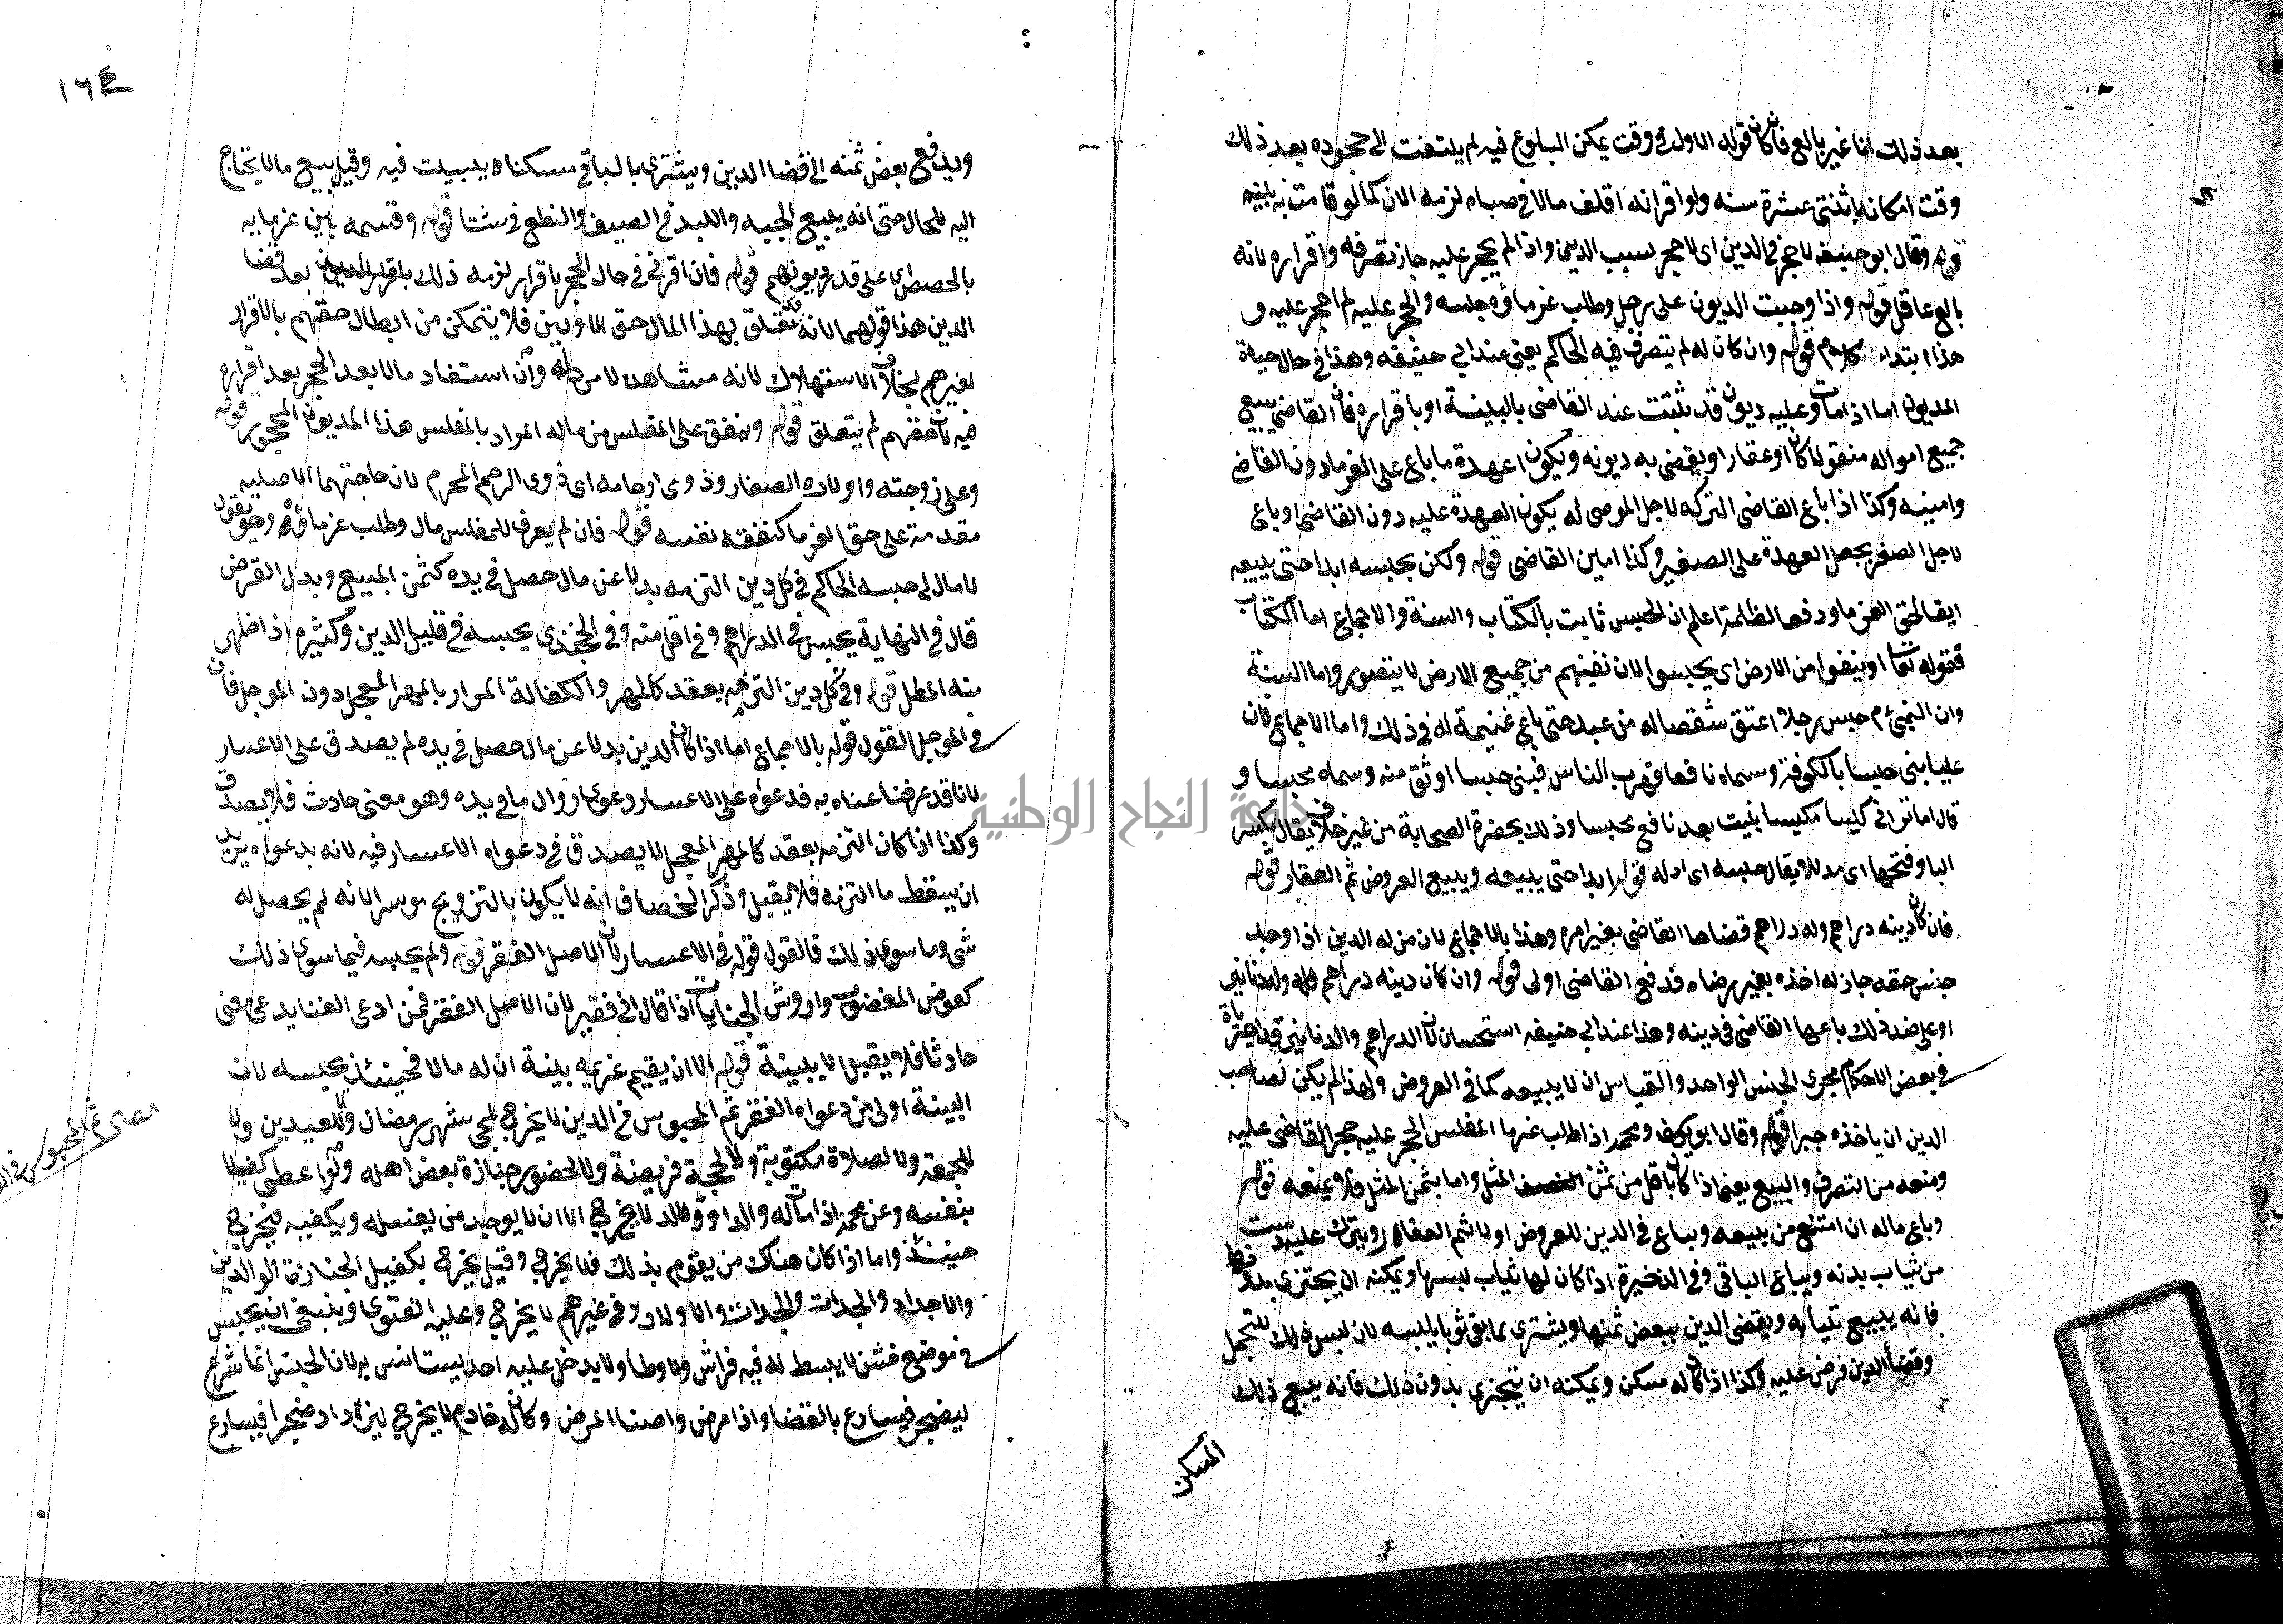 بعد ذلك انا غير بالغ فان كان قوله الاول في وقت يمكن البلوغ فيه لم يلتفت الى جحوده بعد ذلك
وقت امكانه اثنتي عشرة سنه ولو اقر انه اتلف مالا في صباه لزمه الان كما لو قامت به بينه
قوله وقال ابو حنيفه لا حجر في الدين اي لا حجر بسبب الدين واذا لم يحجر عليه جاز تصرفه واقراره لانه
بالغ عاقل قوله واذا وجبت الديون على رجل وطلب غرماؤه حبسه والحجر عليه لم احجر عليه و
هذا ابتداء كلام قوله وان كان له لم يتصرف فيه الحاكم يعني عند ابي حنيفه وهذا في حال حياة
المديون اما اذا مات وعليه ديون قد ثبتت عند القاضي بالبينة او باقراره فان القاضي يبيع
جميع امواله منقولا كان او عقارا ويقضي به ديونه ويكون عهدة ما باع على الغرما دون القاضي
وامينه وكذا اذا باع القاضي التركه لاجل الموصى له يكون العهدة عليه دون القاضي او باع
لاجل الصغير يجعل العهدة على الصغير وكذا امين القاضي قوله ولكن يحبسه ابدا حتى يبيعه
ايفا لحق الغرما ودفعا لظلمه اعلم ان الحبس ثابت بالكتاب والسنة والاجماع اما الكتاب
فقوله تعا او ينفوا من الارض اي يحبسوا لان نفيهم من جميع الارض لا يتصور واما السنة
وان النبي م حبس رجلا اعتق شقصا له من عبد حتى باع غنيمة له في ذلك واما الاجماع فان
عليا بنى حبسا بالكوفة وسماه نافعا فهرب الناس فبنى حبسا اوثق منه وسماه مخيسا و
قال اما تراني كيسا مكيسا بنيت بعد نافع مخيسا وذلك بحضرة الصحابة من غير خلاف يقال بكسر
اليا وفتحها اي مذللا يقال خيسه اي اذله قوله ابدا حتى يبيعه ويبيع العروض ثم العقار قوله
فان كان دينه دراهم وله دراهم قضاها القاضي بغير امره وهذا بالاجماع لان من له الدين اذا وجد
جنس حقه جاز له اخذه بغير رضاه فدفع القاضي اولى قوله وان كان دينه دراهم وله دنانير
او على ضد ذلك باعها القاضي في دينه وهذا عند ابي حنيفه استحسان لان الدراهم والدنانير قد اجريا
في بعض الاحكام مجرى الجنس الواحد والقياس ان لا يبيعه كما في العروض ولهذا لم يكن لصاحب
الدين ان ياخذه جبرا قوله وقال ابو يوسف ومحمد اذا طلب غرما المفلس الحجر عليه حجر القاضي عليه
ومنعه من التصرف والبيع يعني اذا كان باقل من ثمن المثل واما بثمن المثل فلا يمنعه قوله
وباع ماله ان امتنع من بيعه ويباع في الدين العروض اولا ثم العقار ويترك عليه دست
من ثياب بدنه ويباع الباقي وفي الذخيرة اذا كان لها ثياب يلبسها ويمكنه ان يجتزي بدونها
فانه يبيع ثيابه ويقضي الدين ببعض ثمنها ويشتري بما بقي ثوبا يلبسه لان لبس ذلك للتجمل
وقضا الدين فرض عليه وكذا اذا كان له مسكن ويمكنه ان يتجزي بدون ذلك فانه يبيع ذلك
المسكن
١٦٤
ويدفع بعض ثمنه الى قضا الدين ويشتري بالباقي مسكنا يبيت فيه وقيل يبيع ما لا يحتاج
اليه للحال حتى انه يبيع الجبه واللبد في الصيف والنطع في شتا قوله وقسمه بين غرمايه
بالحصص اي على قدر ديونهم قوله فان اقر في حال الحجر باقرار لزمه ذلك بعد قضا
الدين هذا قولهما لانه قد تعلق بهذا المال حق الاولين فلا يتمكن من ابطال حقهم بالاقرار
لغيرهم بخلاف الاستهلاك لانه مشاهد لا مرد له وان استفاد مالا بعد الحجر بعد اقراره
فيه لان حقهم لم يتعلق قوله وينفق على المفلس من ماله المراد بالمفلس هذا المديون المحجور قوله
وعلى زوجته واولاده الصغار وذوي ارحامه اي ذوي الرحم المحرم لان حاجتهما الاصليه
مقدمة على حق الغرما كنفقة نفسه قوله فان لم يعرف للمفلس مال وطلب غرماؤه وهو يقول
لا مال لي حبسه الحاكم في كل دين التزمه بدلا عن مال حصل في يده كثمن المبيع وبدل القرض
قال في النهاية يحبس في الدراهم وفي اقل منه وفي الخجندي يحبسه في قليل الدين وكثيره اذا ظهر
منه المطل قوله وفي كل دين التزمه بعقد كالمهر والكفالة المراد بالمهر المعجل دون الموجل فان
في الموجل القول قوله بالاجماع اما اذا كان الدين بدلا عن مال حصل في يده لم يصدق على الاعسار
لانا قد عرفنا غناه به فدعواه على الاعسار دعوى زوال ما في يده وهو معنى حادث فلا يصدق
وكذا اذا كان التزمه بعقد كالمهر المعجل لا يصدق في دعواه الاعسار فيه لانه بدعواه يريد
ان يسقط ما التزمه فلا يقبل وذكر الخصاف انه لا يكون بالتزويج موسرا لانه لم يحصل له
شي وما سوى ذلك فالقول قوله في الاعسار لان الاصل الفقر قوله ولم يحبسه فيما سوى ذلك
كعوض المغضوب واروش الجنايات اذا قال اني فقير لان الاصل الفقر فمن ادعى الغنا يدعى معنى
حادثا فلا يقبل الا ببينة قوله الا ان يقيم غريمه بينة ان له مالا فحينئذ يحبسه لان
البينة اولى من دعواه الفقر ثم المحبوس في الدين لا يخرج لمجي شهر رمضان ولا للعيدين ولا
للجمعه ولا لصلاة مكتوبة ولا لحجة فريضة ولا لحضور جنازة بعض اهله ولو اعطى كفيلا
بنفسه وعن محمد اذا مات له والد او ولد لا يخرج الا ان لا يوجد من يغسله ويكفنه فيخرج
حينئذ واما اذا كان هناك من يقوم بذلك فلا يخرج وقيل يخرج بكفيل لجنازة الوالدين
والاجداد والجدات والاولاد وفي غيرهم لا يخرج وعليه الفتوى وينبغي ان يحبس
في موضع خشن لا يبسط له فيه فراش ولا وطا ولا يدخل عليه احد يستانس به لان الحبس انما شرع
ليضجر فيسارع بالقضا واذا مرض واضناه المرض وكان له خادم لا يخرج ليزداد ضجرا فيسارع
جامعة النجاح الوطنية